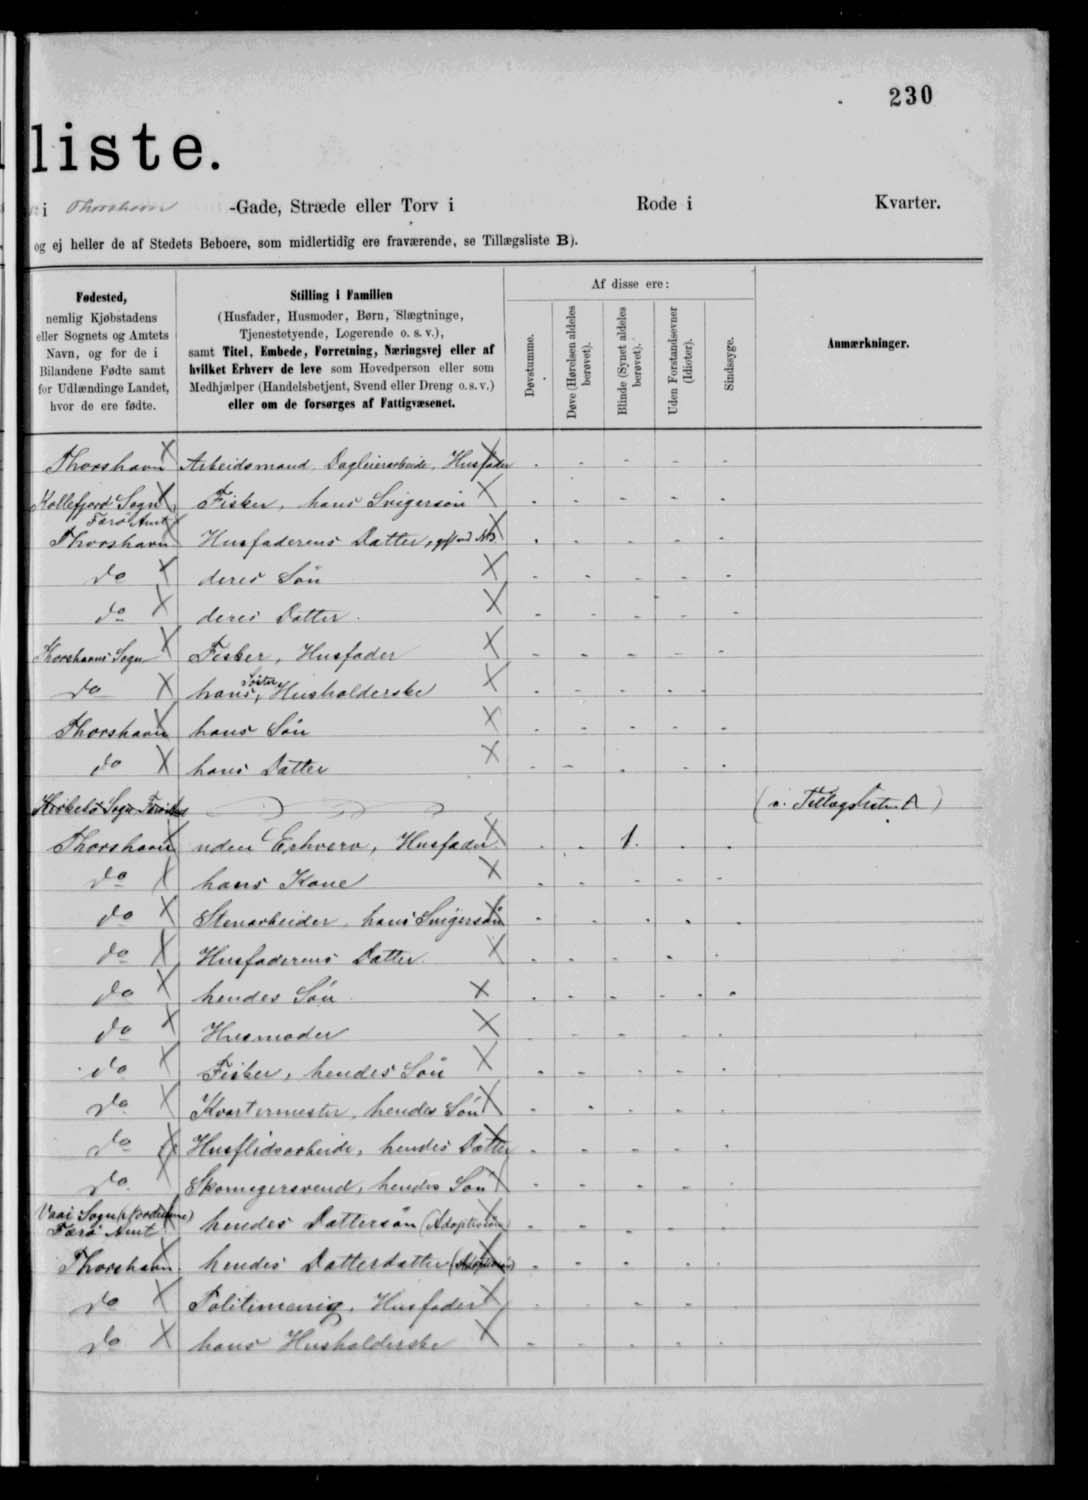 230
liste.
i Thorshavn -Gade, Stræde eller Torv i Rode i Kvarter.
og ej heller de af Stedets Beboere, som midlertidig ere fraværende, se Tillægsliste B).
Fødested,
nemlig Kjøbstadens
eller Sognets og Amtets
Navn, og for de i
Bilandene Fødte samt
for Udlændinge Landet,
hvor de ere fødte.
Stilling i Familien
(Husfader, Husmoder, Børn, Slægtninge,
Tjenestetyende, Logerende o. s. v.),
samt Titel, Embede, Forretning, Næringsvej eller af
hvilket Erhverv de leve som Hovedperson eller som
Medhjælper (Handelsbetjent, Svend eller Dreng o. s. v.)
eller om de forsørges af Fattigvæsenet.
Af disse ere:
Døvstumme.
Døve (Hørelsen aldeles
berøvet).
Blinde (Synet aldeles
berøvet).
Uden Forstandsevner
(Idioter).
Sindssyge.
Anmærkninger.
Thorshavn Arbeidsmand Husfader
Kollefjord Sogn Fisker, hans Svigersön
Farö Amt
Thorshavn Husfaderens Datter,
do deres Sön
do deres Datter
Sogn Fisker, Husfader
do hans Söster, Husholderske
Thorshavn hans Sön
do hans Datter
Sogn (v. Tillægsliste A)
Thorshavn uden Erhverv, Husfader 1.
do hans Kone
do Stenarbeider, hans Svigersön
do Husfaderens Datter
do hendes Sön
do Husmoder
do Fisker, hendes Sön
do Kvartermester, hendes Sön
do Husflidsarbeide, hendes Datter
do Skomagersvend, hendes Sön
Vaai Sogn
Farö Amt hendes Dattersön (Adoptivsön)
Thorshavn hendes Datterdatter
do Husfader
do hans Husholderske